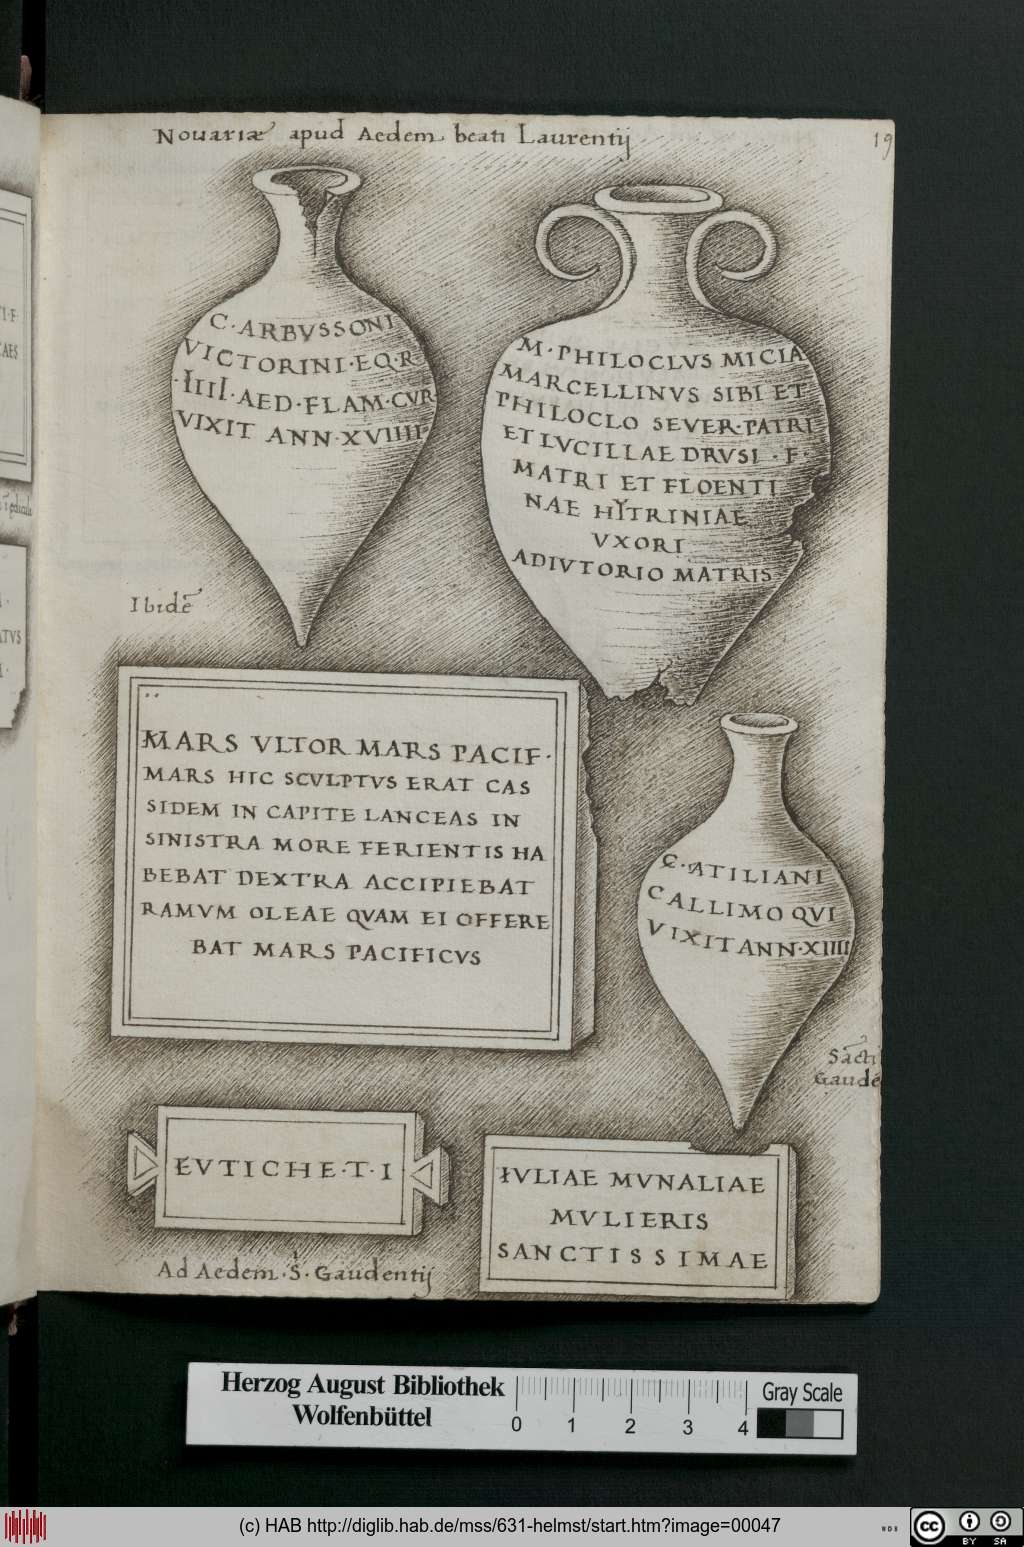 Nouariæ apud Aedem beati Laurentij
19
C·ARBVSSONI
VICTORINI·EQ·R·
·IIII·AED·FLAM·CVR
VIXIT ANN·XVIIII·
M·PHILOCLVS MICIA
MARCELLINVS SIBI ET
PHILOCLO SEVER·PATRI
ET LVCILLAE DRVSI·F·
MATRI ET FLOENTI
NAE HYTRINIAE
VXORI
ADIVTORIO MATRIS
Ibidē
MARS VLTOR MARS PACIF·
MARS HIC SCVLPTVS ERAT CAS
SIDEM IN CAPITE LANCEAS IN
SINISTRA MORE FERIENTIS HA
BEBAT DEXTRA ACCIPIEBAT
RAMVM OLEAE QVAM EI OFFERE
BAT MARS PACIFICVS
C·ATILIANI
CALLIMO QVI
VIXIT ANN·XIIII
Sācti
Gaudē
EVTICHE·T·I
IVLIAE MVNALIAE
MVLIERIS
SANCTISSIMAE
Ad Aedem·S·Gaudentij
Herzog August Bibliothek
Wolfenbüttel
0 1 2 3 4
Gray Scale
(c) HAB http://diglib.hab.de/mss/631-helmst/start.htm?image=00047
cc BY SA